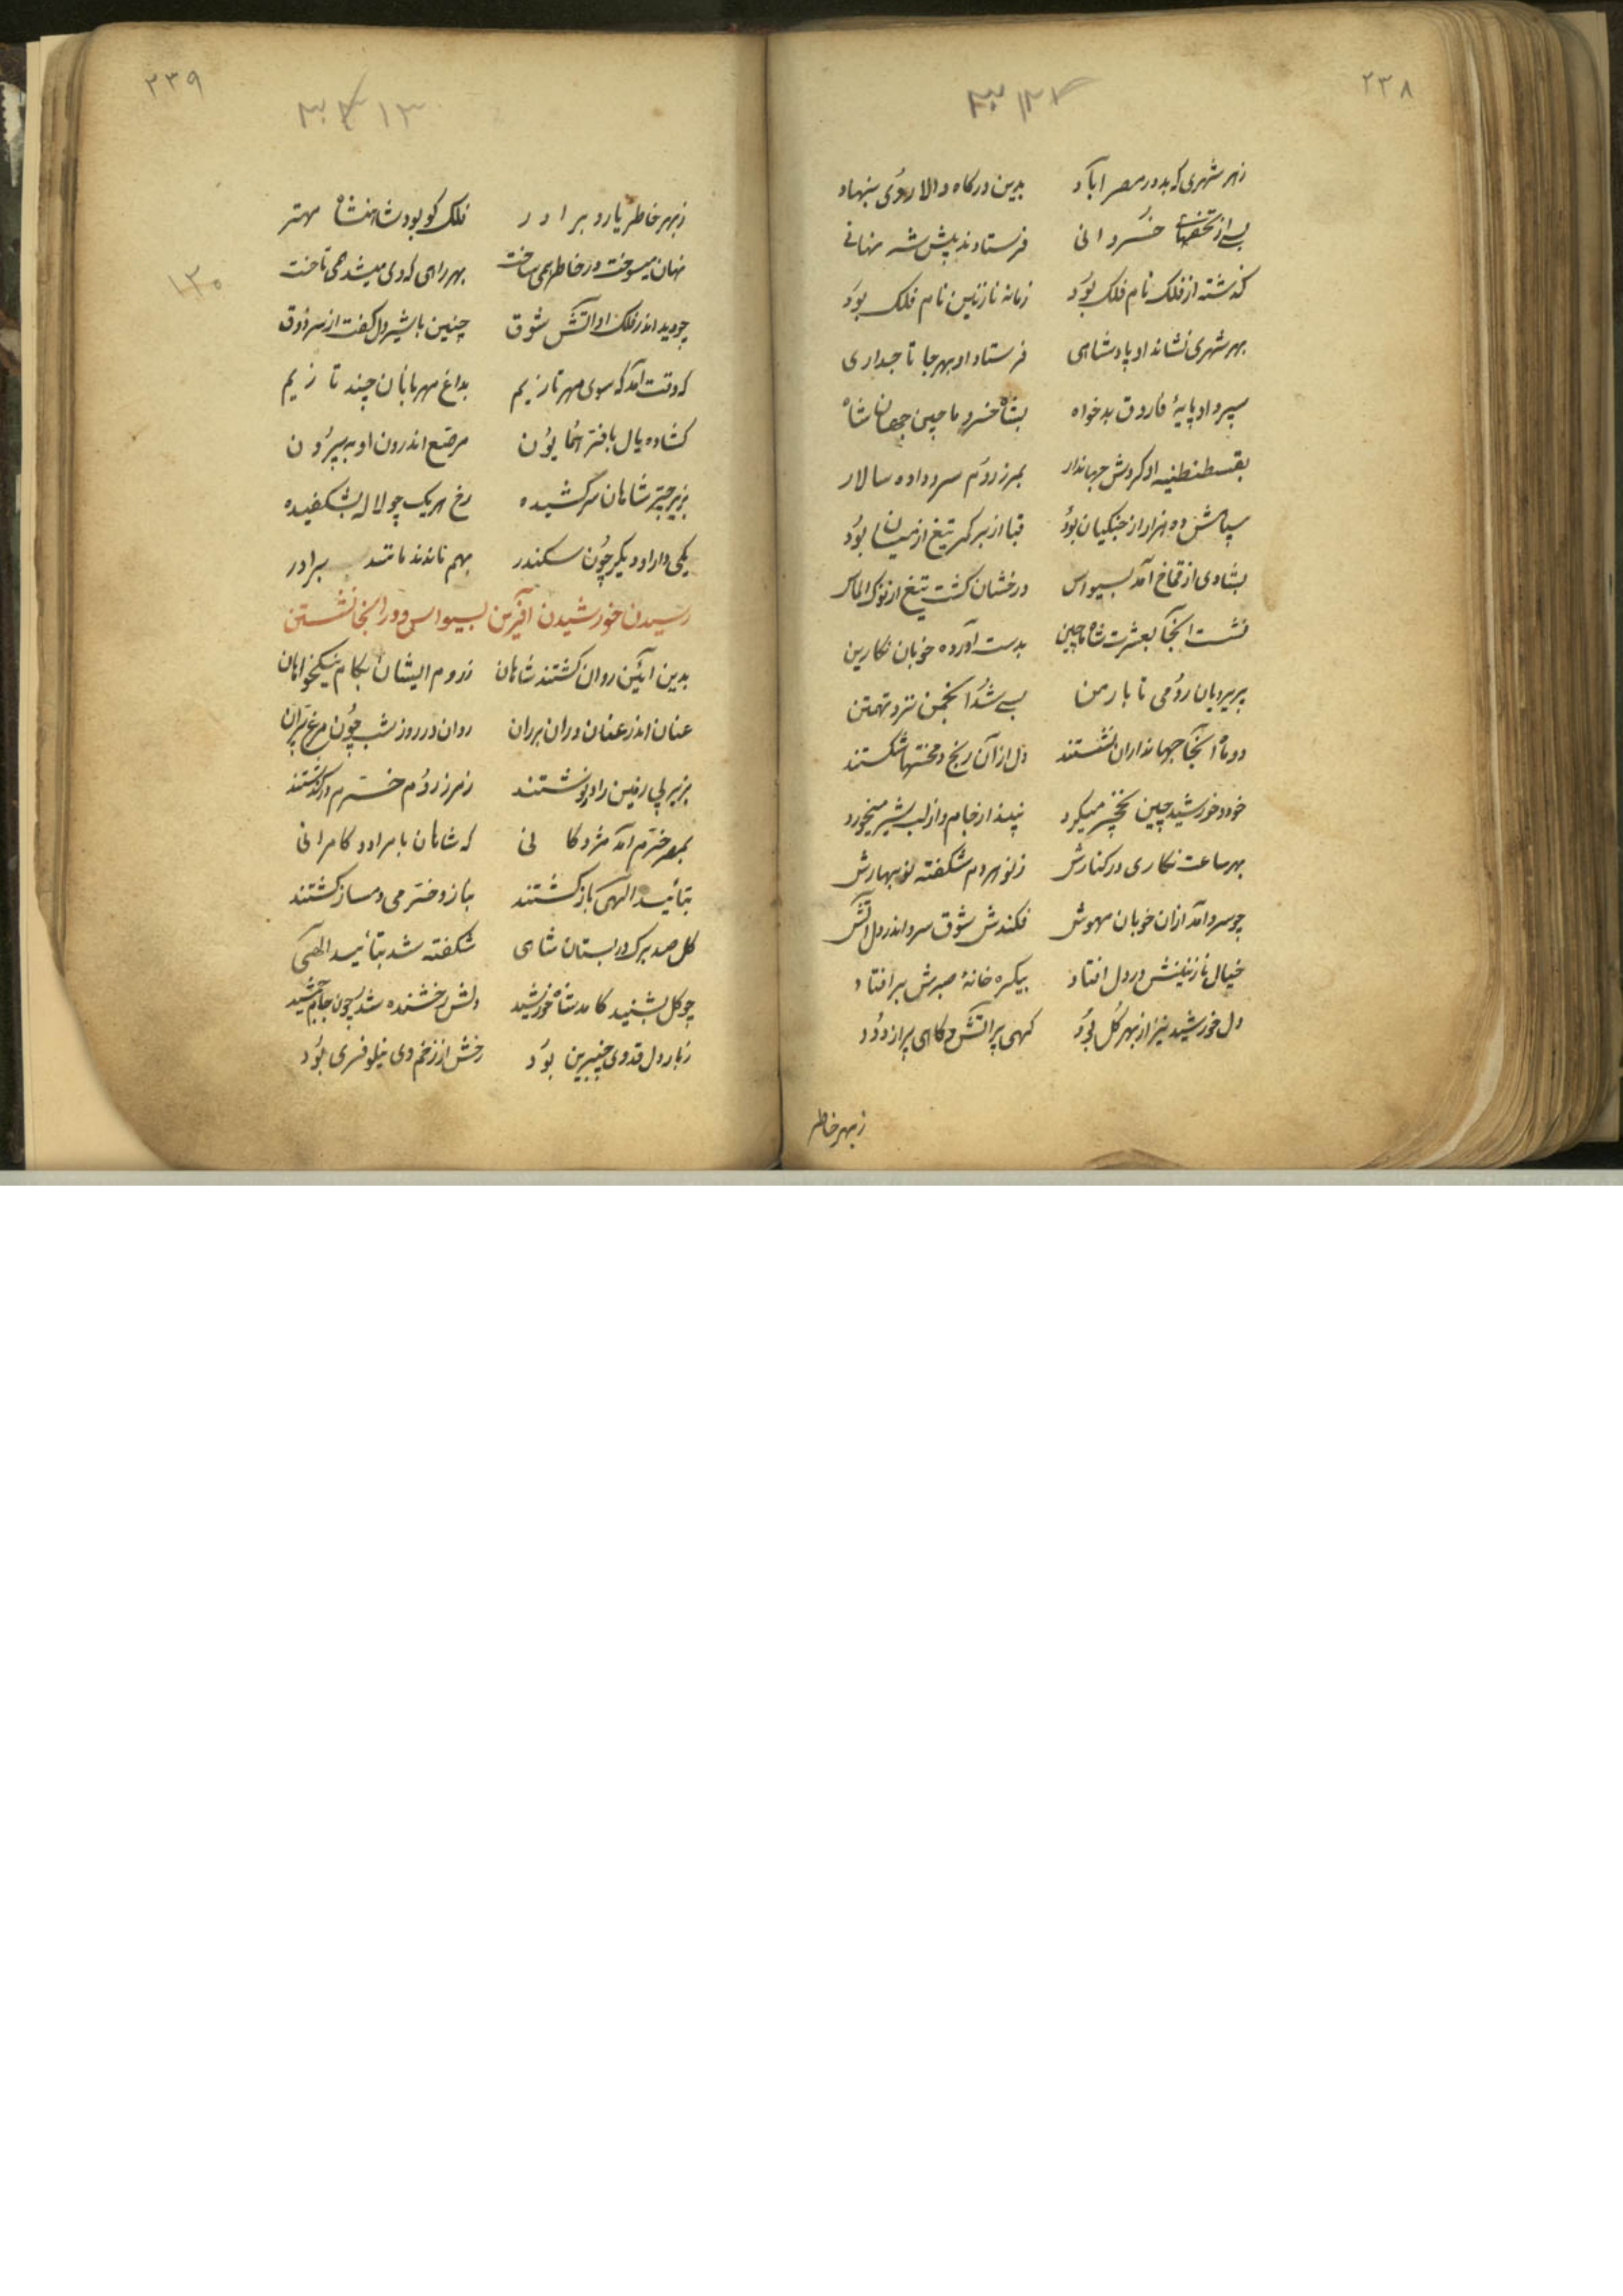 ۲۳۸
زهر شهری که بد در مصر آباد بدین درگاه والا روی بنهاد
بسے از تحفهاے خسروانی فرستادند پیش شه نهانے
گذشته از فلک نام فلک بود زمانه نازنین نام فلک بود
بهر شهری نشاند او پادشاهی فرستاد او بهر جا تاجداری
سپرد او پایهٔ فاروق بدخواه بشاه خسرو ماچین جهان شاه
بقسطنطنیه او کردش جهاندار بمرز روم سر داده سالار
سپاهش ده هزار از جنکیان بود قبا از بر کمر تیغ از میان بود
بشادی از قماخ آمد بسیواس درخشان کشت تیغ از نوک الماس
نشست آنجا بعشرت شاه ماچین بدست آورده خوبان نکارین
پریرویان رومی تا بارمن بسے شد انجمن نزد تهمتن
دو ماه آنجا جهانداران نشستند دل از آن رنج و محنتها شکستند
خود خورشید چین نخچیر میکرد نبیذ از جام و از لب شیر میخورد
بهر ساعت نکاری در کنارش ز نو هر دم شکفته نوبهارش
چو سرد آمد از ان خوبان مهوش فکندش شوق سرو اندر دل آتش
خیال نازنینش در دل افتاد بیکره خانهٔ صبرش بر افتاد
دل خورشید نیز از بهر کل بود کهی پر آتش و کاهی پر از دود
زبهر خاطر
۲۳۹
زبهر خاطر یار و برادر فلک کو بود شاهنشاه مهتر
نهان میسوخت و در خاطر همی ساخت بهر راهی که وی میشد همی تاخت
چو دید اندر فلک او آتش شوق چنین با شیردل کفت از سر ذوق
که وقت آمد که سوی مهر تازیم بداغ مهربانان چند تا زیم
کشاده یال با فتر همایون مرصع اندرون او به بیرون
بزیر چتر شاهان سر کشیده رخ هر یک چو لاله بشکفیده
یکی دارا و دیکر چون سکندر بهم ماندند مانند برادر
رسیدن خورشیدن آفرین بسیواس و در انجا نشستن
بدین آئین روان کشتند شاهان ز روم ایشان بکام نیکخواهان
عنان اندر عنان دران بران روان در روز شب چون مرغ پران
بزیر پی زمین را در نوشتند ز مرز روم خرم در کذشتند
بمصر خرم آمد مژدکانی که شاهان بامراد و کامرانی
بتائید الهی باز کشتند بناز و خرمی دمساز کشتند
کل صد برک در بستان شاهی شکفته شد بتائید الهی
چو کل بشنید کامد شاه خورشید دلش رخشنده شد چون جام جمشید
ز بار دل قد وی چنبرین بود رخش از زخم وی نیلوفری بود